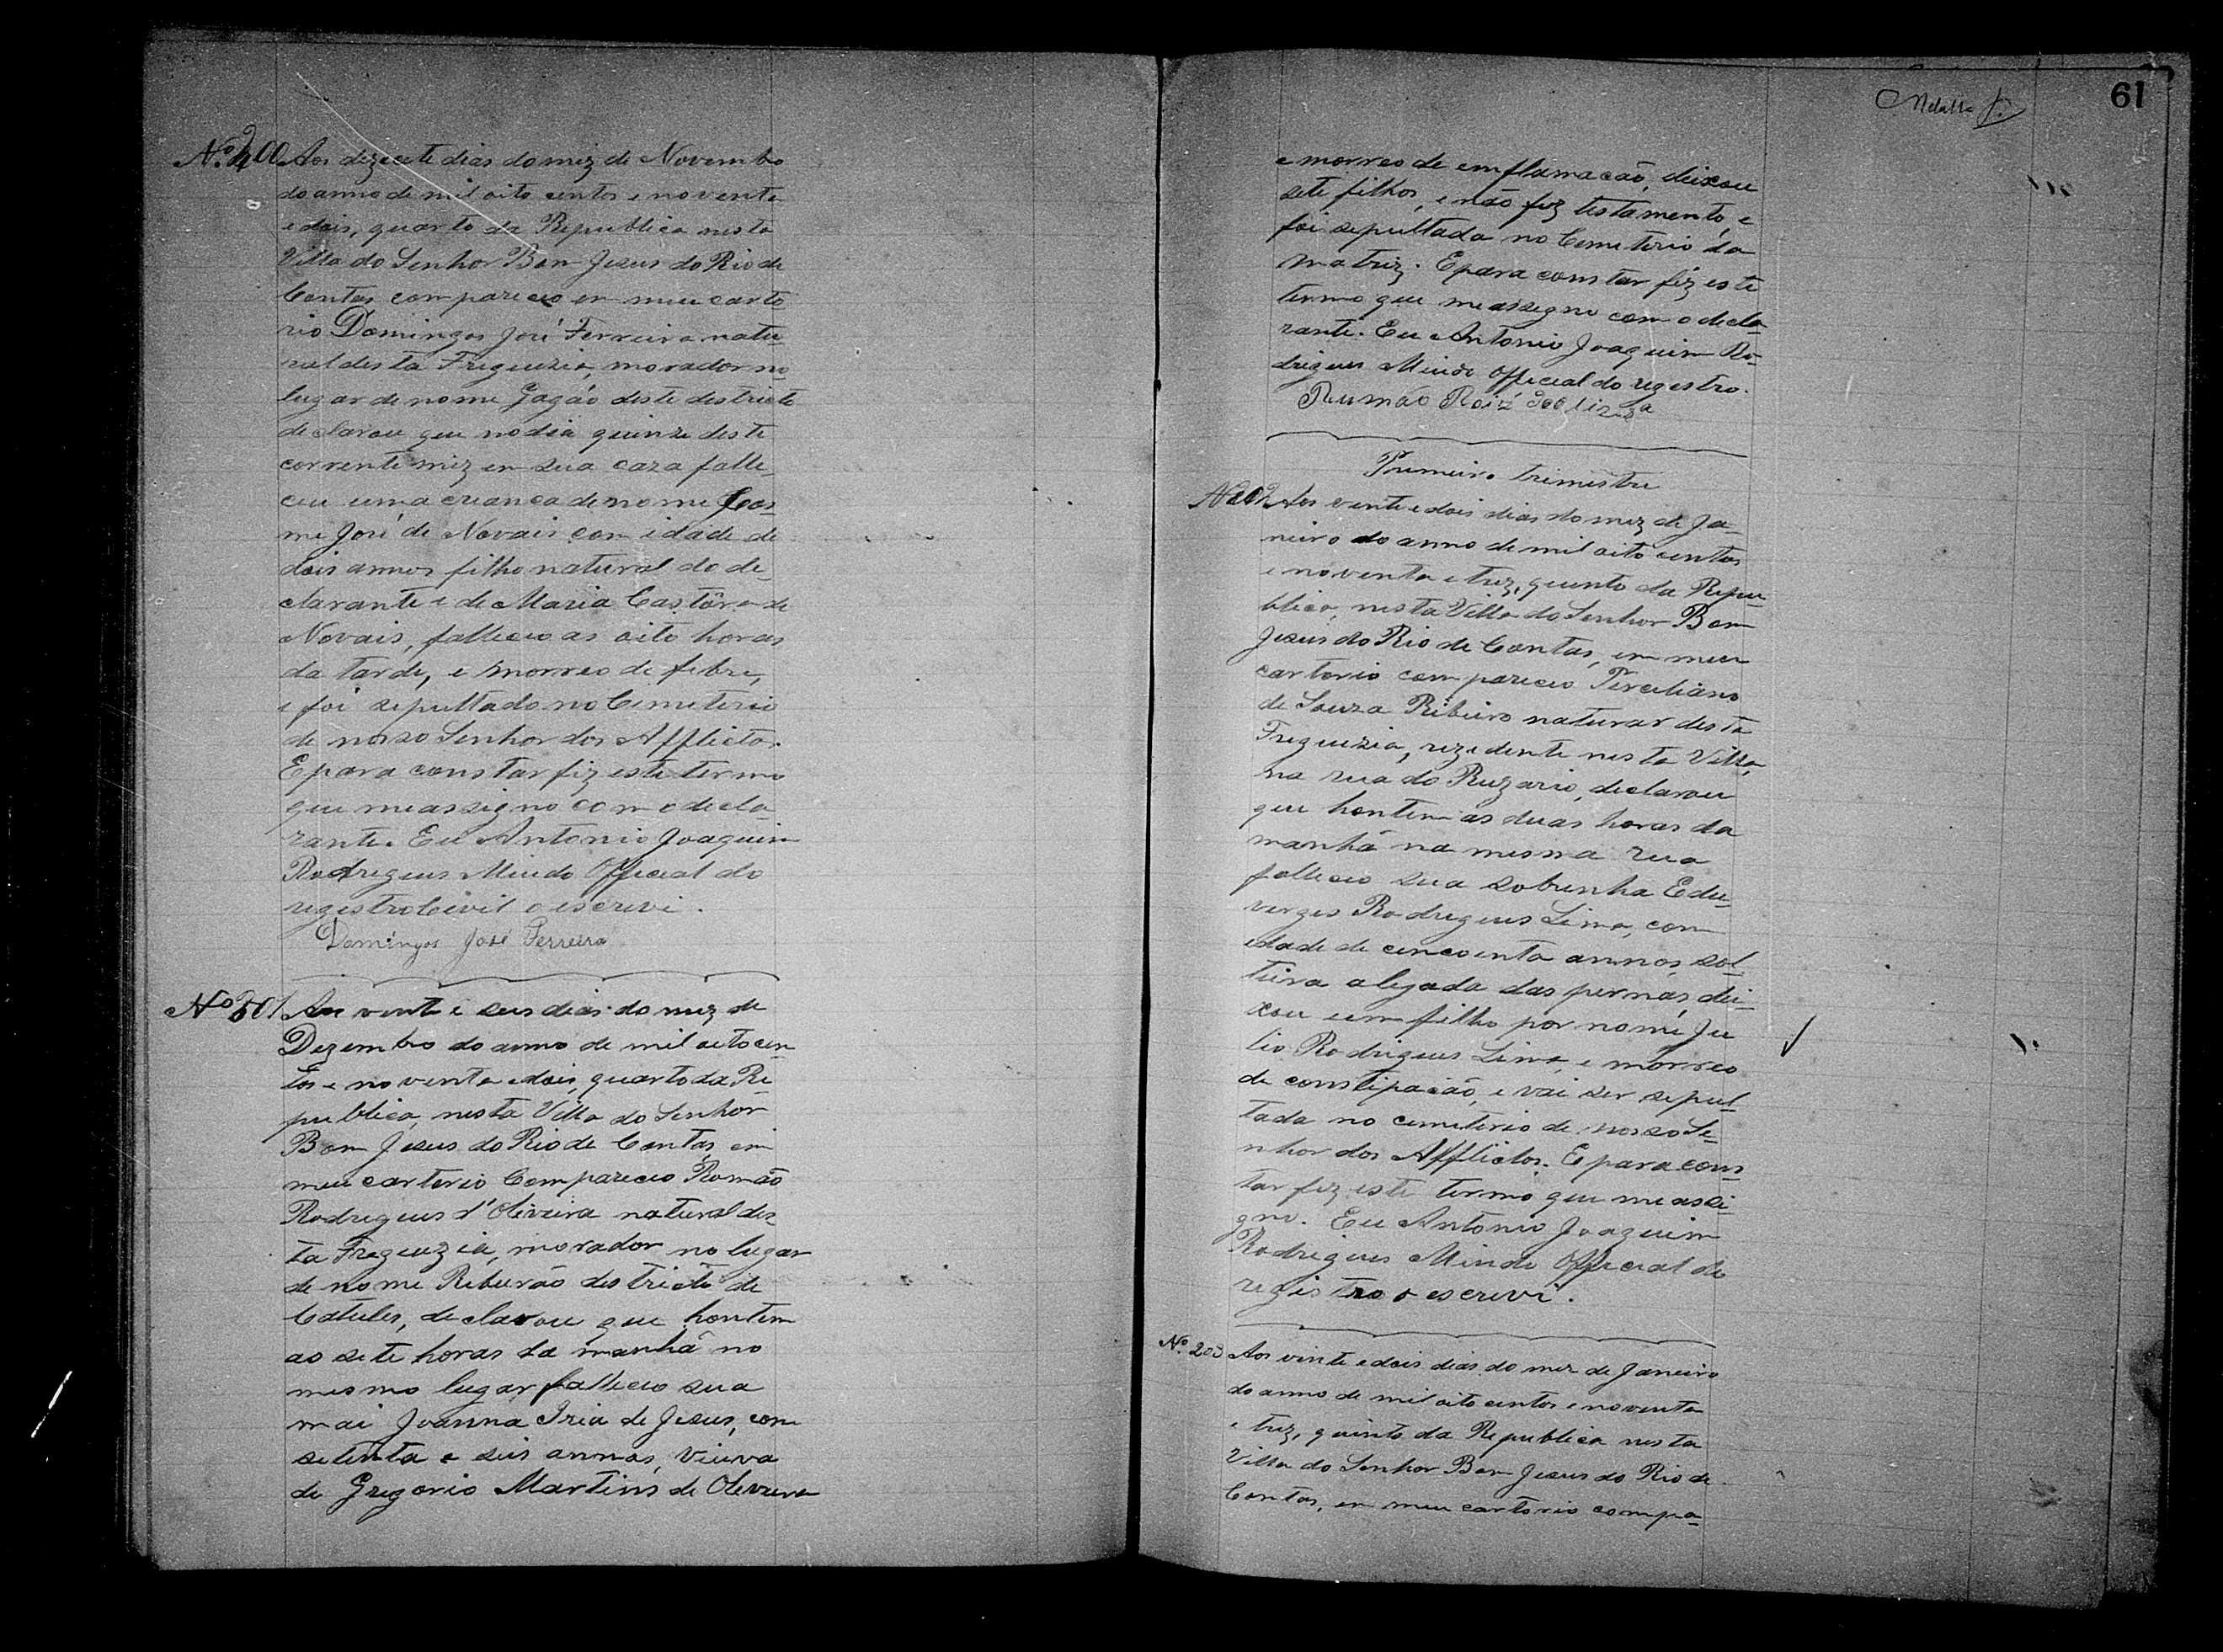 Nº 200 Aos dezecete dias do mez de Novembro
do anno de mil oito centos e noventa
e dois, quarto da Republica nesta
Villa do Senhor Bom Jesus do Rio de
Contas compareceo em meu carto
rio Domingos José Ferreira natu-
ral desta Freguezia, morador no
lugar de nome Gagáo deste destricto
declarou que no dia quinze deste
corrente mez em sua caza falle-
ceu uma creanca de nome Cos-
me José de Novais com idade de
dois annos filho natural do de-
clarante e de Maria Castóra de
Novais, falleceo as oito horas
da tarde, e morreo de febre,
e foi sepultado no Cemeterio
de nosso Senhor dos Afflictos.
E para constar fiz este termo
que me assigno com o decla
rante. Eu Antonio Joaquim
Rodrigues Mindo Official do
registro Civil o escrevi.
Domingos José Ferreira
Nº 201 Aos vente e seis dias do mez de
Dezembro do anno de mil oetocen
tos e noventa e dois, quarto da Re
publica, nesta Villa do Senhor
Bom Jesus do Rio de Contas, em
meu cartorio Compareceo Romão
Rodregues d'Oliveira natural des-
ta Freguzia, morador no lugar
de nome Ribeirão destricto de
Catules, declarou que hontem
as sete horas da manhã no
mesmo lugar falleceo sua
mai Joanna Iria de Jesus, com
setenta e seis annos, viuva
de Gregorio Martins de Oleveira
61
e morreo de emflamacão, deixou
sete filhos, e não fez testamento, e
foi sepultada no Cemeterio da
matriz. E para constar fiz este
termo que me assegno com o decla-
rante. Eu Antonio Joaquim Ro-
drigues Mindo Official do regestro.
Primeiro trimestre
Nº 202 Aos vente e dois dias do mez de Ja-
neiro do anno de mil oito centos
e noventa e trez, quinto da Repu-
blica, nesta Villa do Senhor Bom
Jesus do Rio de Contas, em meu
cartorio compareceo Terculiano
de Souza Ribeiro naturar desta
Freguezia, rezedente nesta Villa,
na rua do Ruzario, declarou
que hontem as duas horas da
manhã na mesma rua
falleceo sua sobrinha Edu-
verges Rodregues Lima, com
edade de cencoenta annos, sol-
teira alejada das pernas, dei-
xou um filho por nome Ju
lio Rodrigues Lima, e morreo
de constipacão, e vai ser sepul-
tada no cemeterio de nosso Se-
nhor dos Afflictos. E para cons
tar fiz este termo que me assi-
gno. Eu Antonio Joaquim
Rodrigues Mindo Official do
registro o escrevi.
Nº 203 Aos vinte e dois dias do mez de Janeiro
do anno de mil oito centos e noventa
e trez, quinto da Republica nesta
Villa do Senhor Bom Jesus do Rio de
Contas, em meu cartorio compa-